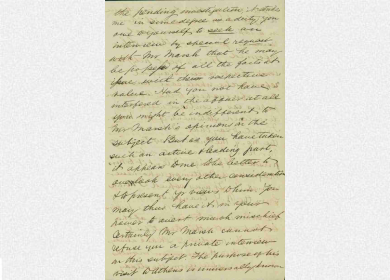 the pending investigation. It strikes
me in some degree a duty you
owe yourself to seek an
interview by special request
with Mr Marsh that he may
be possessed of all the facts at
their respective
value. Had you not have
interfered in the affair at all
you might be indifferent to
Mr Marsh's opinions on the
subject. But as you have taken
such an active & leading part,
it appears to me the better to
overlook every other consideration
& to present yr views to him. You
may thus have it in your
power to avert much mischief.
Certainly Mr Marsh cannot
refuse you a private interview
on this subject. The purpose of his
visit to Athens is universally known